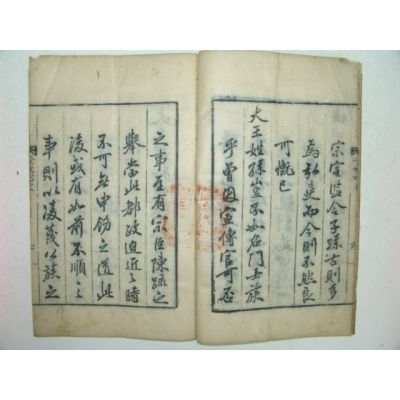 宗室遠令子孫古則多
為弘其而今則不然良
可慨已
大王姓孫豈不如名門士族
乎曾因宣傳官可否
之事至有宗臣陳疏之
舉當此都政迫近之時
不可無申飭之道此
後或有如前不順之
事則以凌蔑公族之